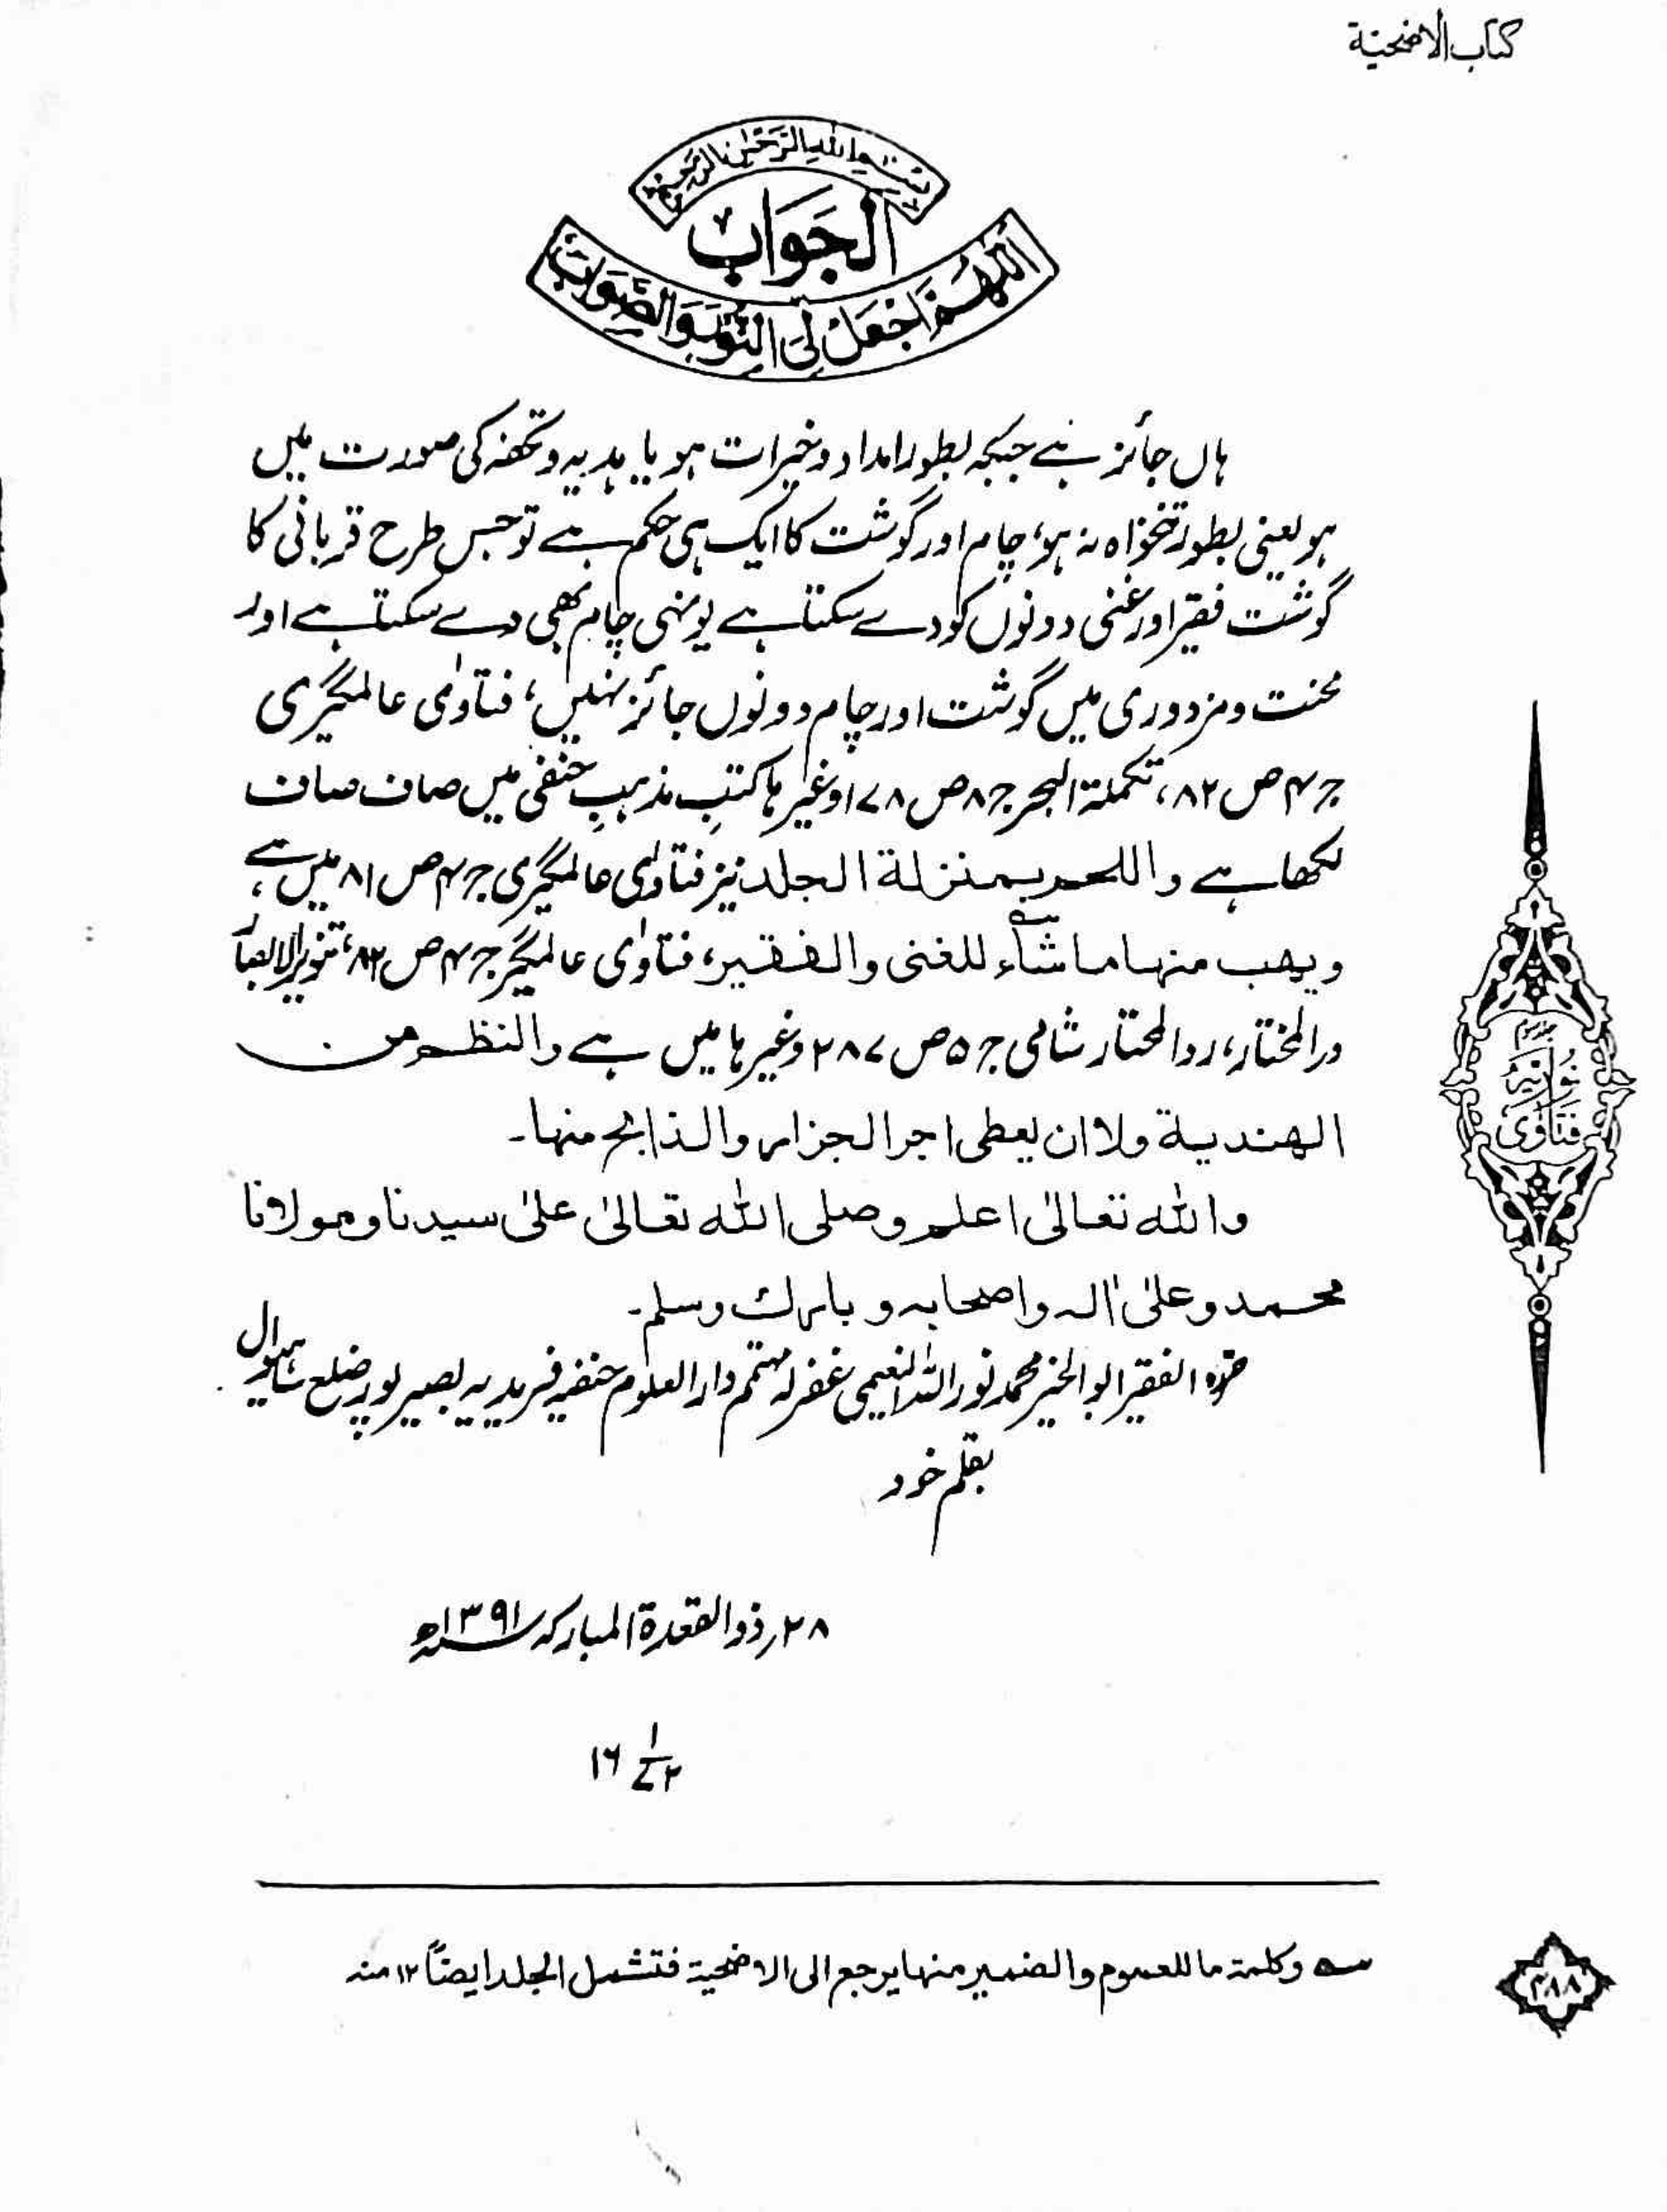 كتاب الاضحية
بسم الله الرحمن الرحيم
الجواب
اللهم اجعل لی النور والصواب
ہاں جائز ہے جبکہ بطور امداد و خیرات ہو یا ہدیہ و تحفہ کی صورت میں
ہو یعنی بطور تنخواہ نہ ہو، چام اور گوشت کا ایک ہی حکم ہے تو جس طرح قربانی کا
گوشت فقیر اور غنی دونوں کو دے سکتا ہے یونہی چام بھی دے سکتا ہے اور
محنت و مزدوری میں گوشت اور چام دونوں جائز نہیں، فتاوٰی عالمگیری
ج ۴ ص ۸۲، تکملۃ البحر ج ۸ ص ۱۷۸ وغیرہا کتبِ مذہبِ حنفی میں صاف صاف
لکھا ہے واللحم بمنزلة الجلد نیز فتاوٰی عالمگیری ج ۴ ص ۸۱ میں ہے،
ويهب منها ما شاءسه للغنى والفقير، فتاوٰی عالمگیر ج ۴ ص ۸۲، تنویر الابصار
درالمختار، ردالمحتار شامی ج ۵ ص ۲۸۷ وغیرہا میں ہے والنظم من
الهندية ولا ان يعطى اجر الجزار والذابح منها۔
والله تعالىٰ اعلم وصلى الله تعالىٰ علىٰ سيدنا ومولانا
محمد وعلىٰ اٰله واصحابه وبارك وسلم۔
حرّہ الفقیر ابوالخیر محمد نور اللہ النعیمی غفرلہ مہتمم دارالعلوم حنفیہ فریدیہ بصیرپور ضلع ساہیوال
بقلم خود
۲۸ ذوالقعدۃ المبارکہ سنہ ۱۳۹۱ھ
۱۶ ۱ ۷۲
سه وكلمة ما للعموم والضمير منها يرجع الى الاضحية فتشمل الجلد ايضاً ۱۲ منه
جلد سوم
نوریہ
فتاوٰی
۲۸۸